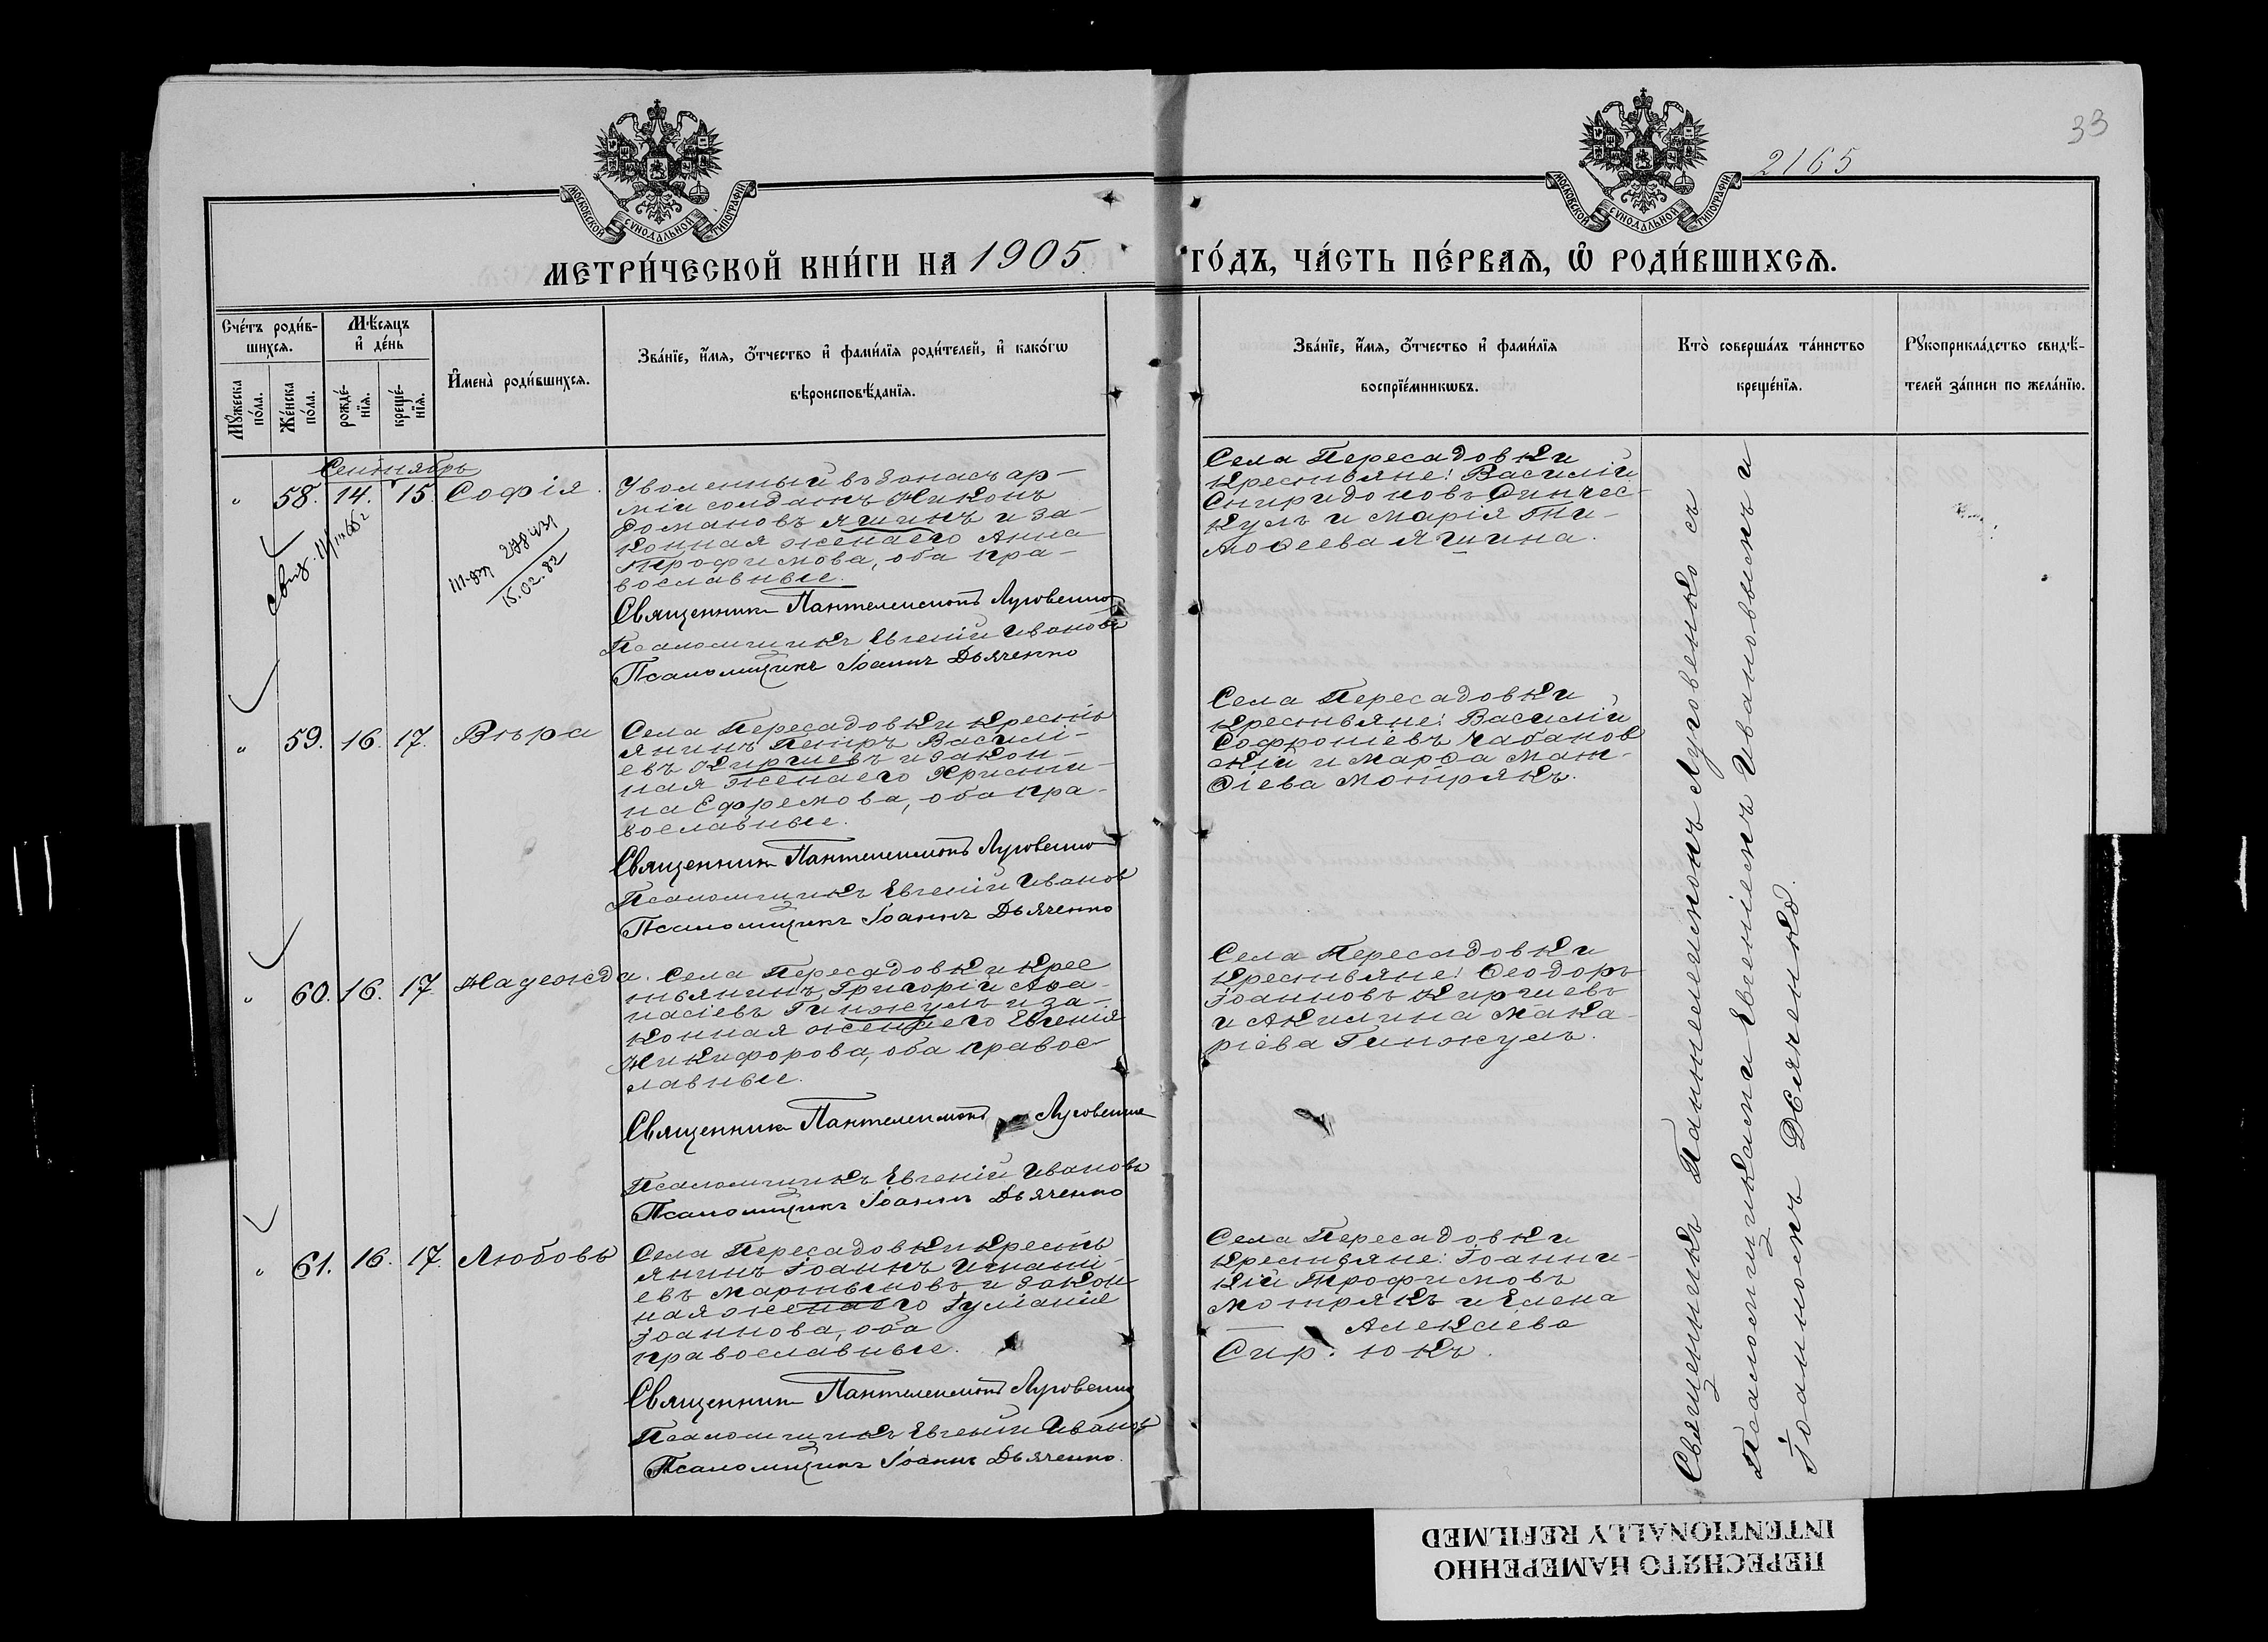 33
2165
МОСКОВСКОЙ СѴНОДАЛЬНОЙ ТИПОГРАФІИ
МОСКОВСКОЙ СѴНОДАЛЬНОЙ ТИПОГРАФІИ
МЕТРИ́ЧЕСКОЙ КНИ́ГИ НА 1905 ГО́ДЪ, ЧА́СТЬ ПЕ́РВАѦ, Ѡ҆ РОДИ́ВШИХСѦ.
Сче́тъ роди́в-
шихсѧ.
Мѣ́сѧцъ
и҆ де́нь
Мꙋ́жеска
по́ла.
Же́нска
по́ла.
рожде́-
нїѧ.
креще́-
нїѧ.
И҆мена̀ роди́вшихсѧ.
Зва́нїе, и҆́мѧ, ѻ҆́тчество и҆ фами́лїѧ роди́телей, и҆ како́гѡ
вѣроисповѣ́данїѧ.
Зва́нїе, и҆́мѧ, ѻ҆́тчество и҆ фами́лїѧ
воспрїе́мникѡвъ.
Кто̀ соверша́лъ та́инство
креще́нїѧ.
Рꙋкоприкла́дство свидѣ́-
телей за́писи по жела́нїю.
Сентябрь
" 58. 14. 15. Софія.
Уволенный въ запасъ ар-
міи солдатъ Никонъ
Романовъ Яшинъ и за-
конная жена его Анна
Трофимова, оба пра-
вославные.
Священникъ Пантелеимонъ Луговенко
Псаломщикъ Евгеній Ивановъ
Псаломщикъ Іоаннъ Дьяченко
15.02.82
Села Пересадовки
крестьяне: Василій
Спиридоновъ Синчес-
кулъ и Марія Ти-
моѳеева Яшина.
" 59. 16. 17. Вѣра
Села Пересадовки кресть
янинъ Петръ Василі-
евъ Киргиевъ и закон-
ная жена его Христи-
на Ефремова, оба пра-
вославные.
Священникъ Пантелеимонъ Луговенко
Псаломщикъ Евгеній Иванов
Псаломщикъ Іоаннъ Дьяченко
Села Пересадовки
крестьяне: Василій
Софроніевъ Чабанов
скій и Марѳа Мат-
ѳіева Мотрякъ.
" 60. 16. 17. Надежда.
Села Пересадовки крес
тьянинъ Григорій Аѳа-
насіевъ Гинжулъ и за-
конная жена его Евгенія
Никифорова, оба правос-
лавные.
Священникъ Пантелеимонъ Луговенко
Псаломщикъ Евгеній Ивановъ
Псаломщикъ Іоаннъ Дьяченко
Села Пересадовки
крестьяне: Ѳеодоръ
Іоанновъ Киргиевъ
и Акилина Мака-
ріева Гинжулъ.
" 61. 16. 17. Любовь
Села Пересадовки кресть
янинъ Іоаннъ Игнаті-
евъ Мартыновъ и закон-
ная жена его Іуліанія
Іоаннова, оба
православные.
Священникъ Пантелеимонъ Луговенко
Псаломщикъ Евгеній Иванов
Псаломщикъ Іоаннъ Дьяченко.
Села Пересадовки
крестьяне: Іоанни-
кій Трофимовъ
Мотрякъ и Елена
Алексіева
Священникъ Пантелеимонъ Луговенко съ
Псаломщиками Евгеніемъ Ивановымъ и
Іоанномъ Дьяченко.
ПЕРЕСНЯТО НАМЕРЕННО
INTENTIONALLY REFILMED